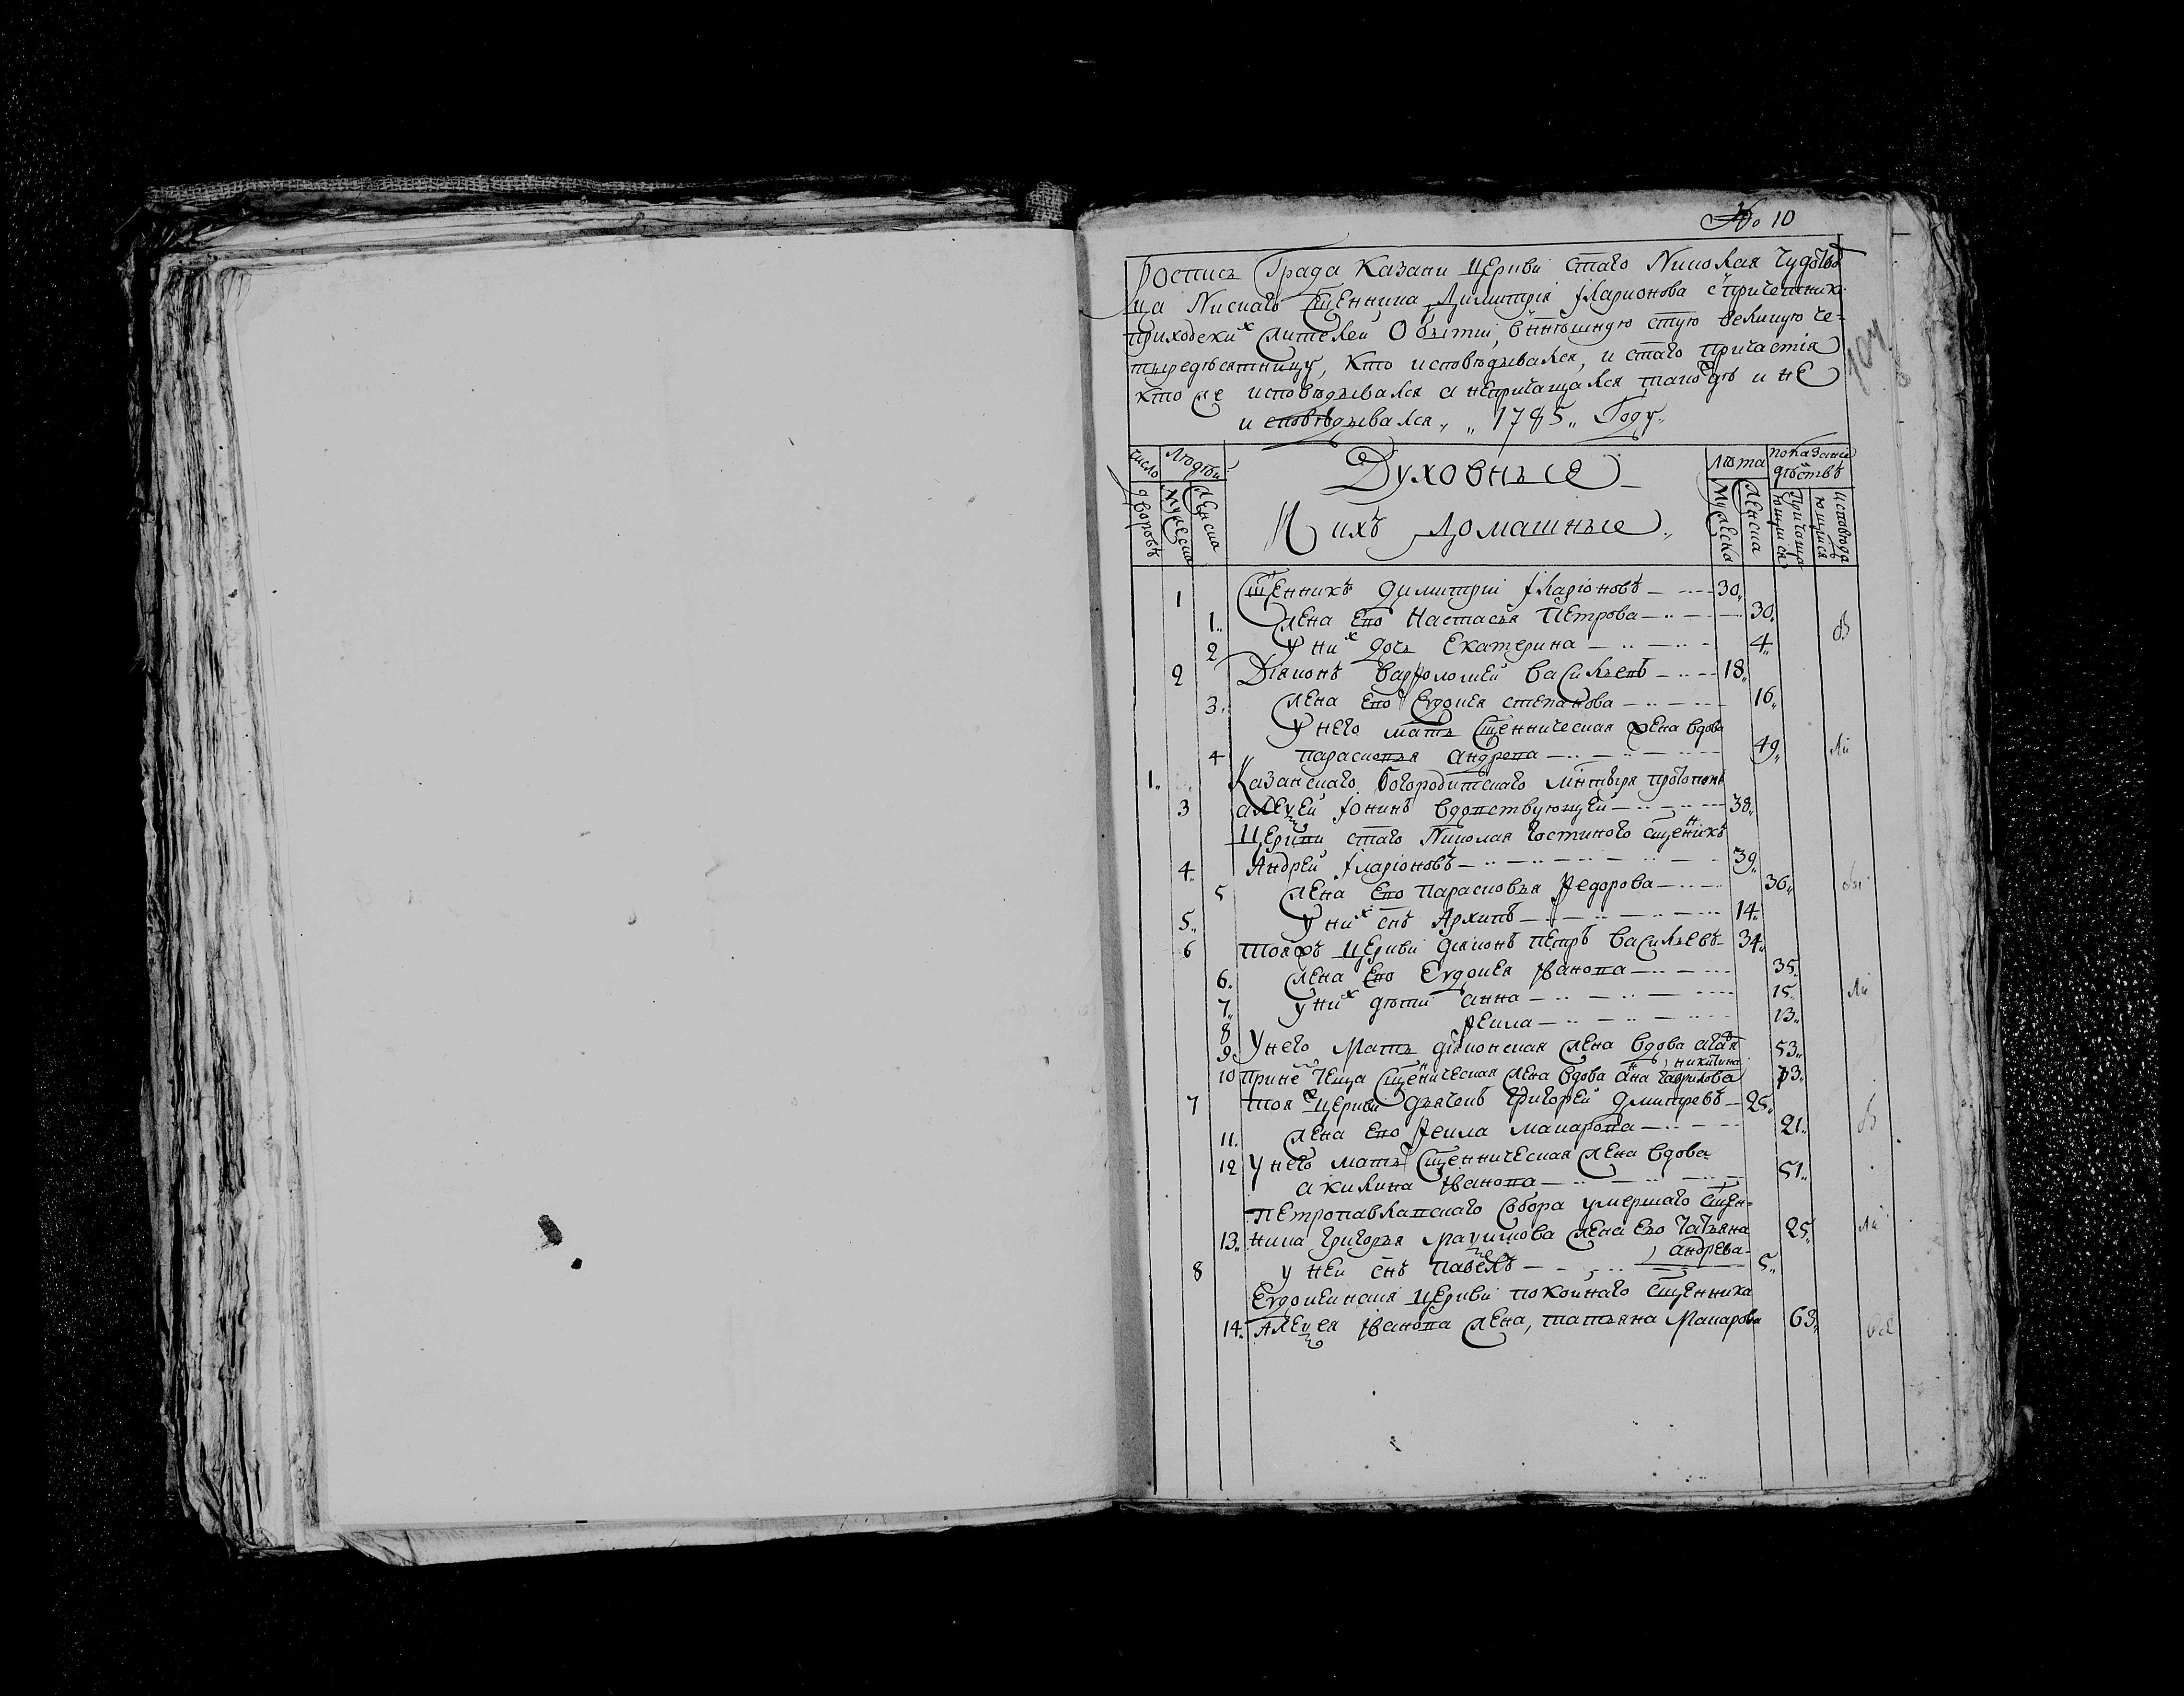 № 10
Роспись Града Казани Церкви стаго Николая Чудотво
ца Нискаго сщенника Димитрія Іларионова с причетники
приходскихъ жителей О бытіи, в ннѣшнюю стую великую че-
тыредѣсятницу, кто исповѣдывался, и стаго причастія
кто же исповѣдывался а непричащался такожде и не
исповѣдывался „ „ 1785 „ Году„
число дворовъ
людѣй
мужеска
женска
Духовныѣ
И ихъ домашныѣ
лѣта
мужеска
женска
показаніе дѣйствъ
Причащающиися
исповѣдающиися
1 Сщенникъ Димитріи Іларіоновъ 30„
1„ Жена Его Настасья Петрова 30„
2 У нихъ дочь Екатерина 4„
2 Діаконъ Варфоломей Васильевъ 18„
3„ Жена Его Евдокея степанова 16„
У него мать Сщенническая жена вдова
4 Парасковья Андрева 49„
1„ Казанскаго Богородитскаго мнтыря протопопъ
3 Алеѯей Іонинъ вдовствующей 38„
Церкви стаго Николая гостинаго сщенникъ
4„ Андрей Іларіоновъ 39„
5 Жена Его Парасковья Ѳедорова 36„
5„ У нихъ снъ Архипъ 14„
6 Тояжъ Церкви діаконъ Петръ Васильевъ 34„
6„ Жена Его Евдокея Іванова 35„
7„ У нихъ дѣти Анна 15„
8 Ѳекла 13„
9„ У него Мать діаконская жена вдова агаѳя 53„
никитина
10 При нея теща Сщенническая жена вдова Анна Гаврилова 73„
7 Тояжъ Церкви Дьячекъ Григорей Дмитревъ 25„
11„ Жена Его Ѳекла Макарова 21„
12 У него мать Сщенническая жена вдова
Акилина Іванова 51„
Петропавлавскаго Собора умершаго сщен-
13„ ника Григорья Маѯимова жена Его Татьяна 25„
андрева
8 У ней снъ Павелъ 5„
Евдокеинскія Церкви покойнаго Сщенника
14„ Алеѯея Іванова жена, татьяна Макарова 63„